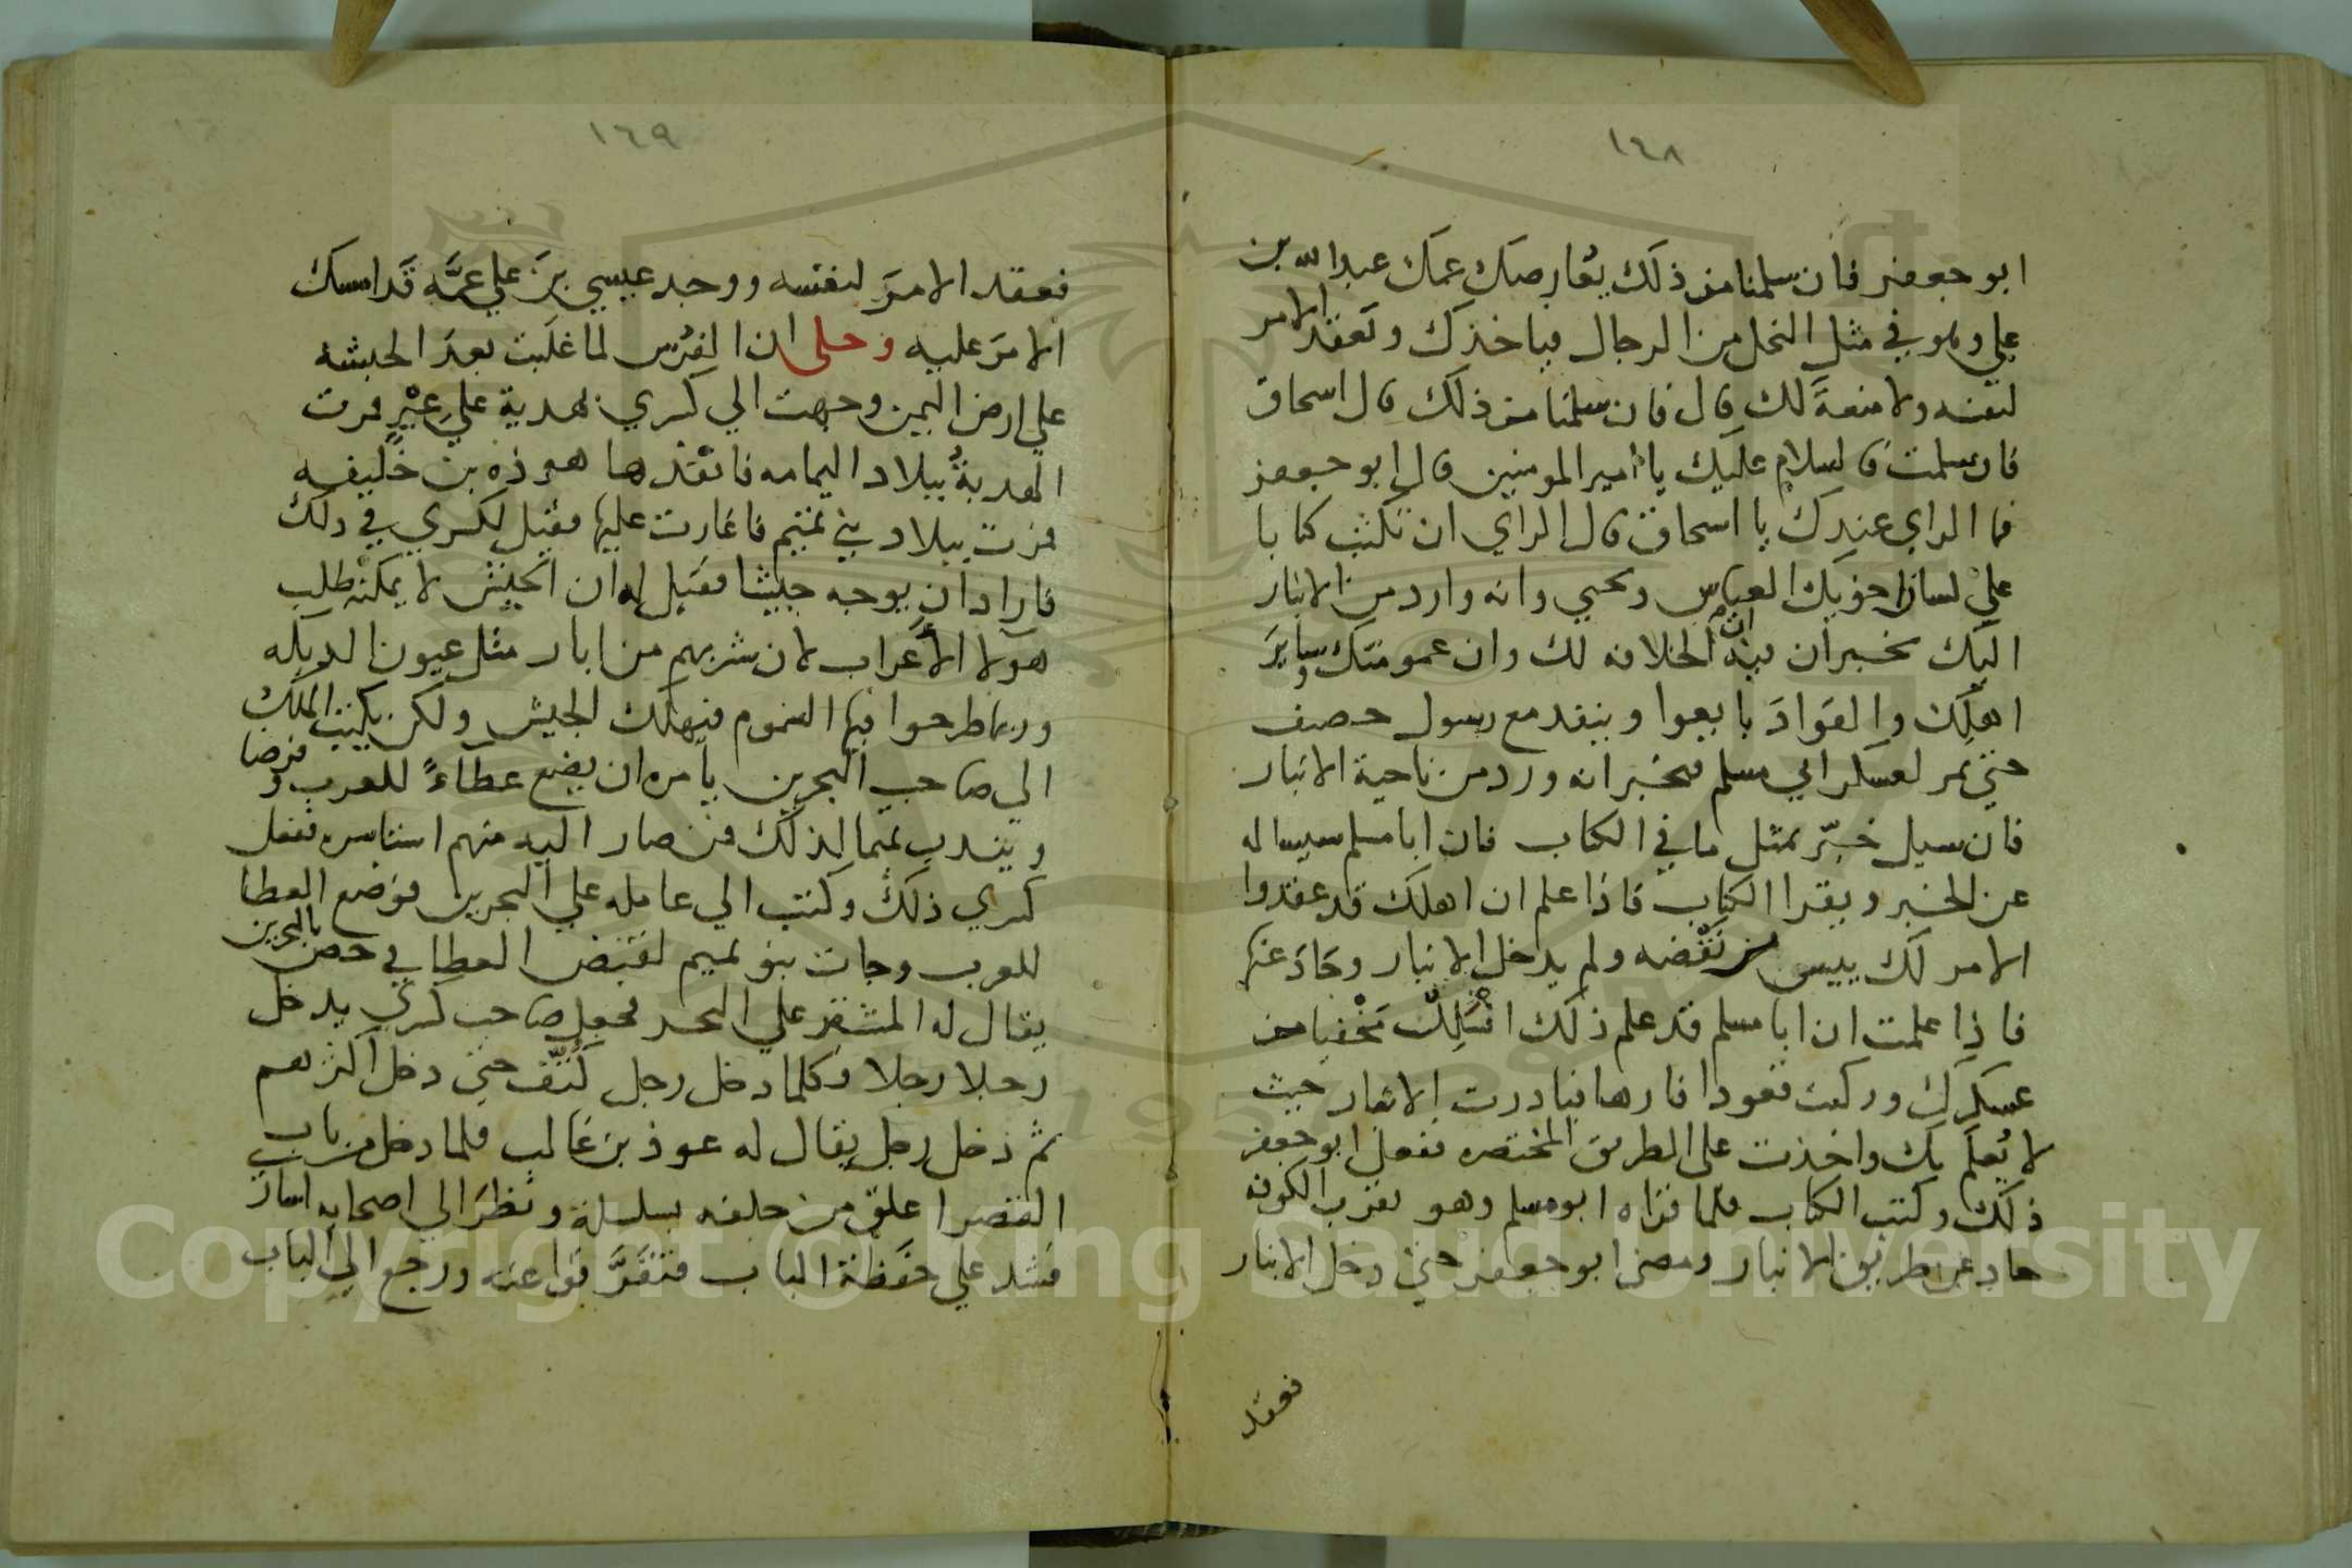 ١٤٨
ابو جعفر فان سلمنا من ذلك يعارضك عمك عبد الله بن
علي وهو في مثل النخل من الرجال فياخذك وتعقد الامر
لنفسه ولا منعة لك قال فان سلمنا من ذلك قال اسحاق
فان سلمت فالسلام عليك يا امير المومنين قال ابو جعفر
فما الراي عندك يا اسحاق قال الراي ان تكتب كتابا
علي لسان اخويك العباس ويحيي وانه وارد من الانبار
اليك يخبران فيه ان الخلافه لك وان عمومتك وساير
اهلك والقواد بايعوا وينفد مع رسول حصيف
حتي يمر لعسكر ابي مسلم فيخبر انه ورد من ناحية الانبار
فان سيل خبّر بمثل ما في الكتاب فان ابا مسلم سيساله
عن الخبر ويقرا الكتاب فاذا علم ان اهلك قد عقدوا
الامر لك ييس من نقضه ولم يدخل الانبار وحاد عنها
فاذا علمت ان ابا مسلم قد علم ذلك انسلك مخفيا من
عسكرك وركبت قعودا فارها فبادرت الانبار حيث
لا يعلم بك واخذت على الطريق المختصره ففعل ابو جعفر
ذلك وكتب الكتاب فلما قراه ابو مسلم وهو بقرب الكوفه
حاد عن طريق الانبار ومضي ابو جعفر حتي دخل الانبار
فعقد
١٤٩
فعقد الامرَ لنفسه ووجد عيسي بن علي عمَّه قد امسك
الامر عليه وحكى ان الفرس لما غلبت بعد الحبشه
علي ارض اليمن وجهت الي كسري بهدية علي عير فمرت
الهدية ببلاد اليمامه فانفذها هوذه بن خليفه
فمرت ببلاد بني تميم فاغارت عليها فقيل لكسري في ذلك
فاراد ان يوجه جيشا فقيل له ان الجيش لا يمكنه طلب
هولا الاعراب لان شربهم من ابار مثل عيون الديكه
وربما طرحوا فيها السموم فيهلك الجيش ولكن يكتب الملك
الي صاحب البحرين يامره ان يضع عطاءً للعرب وفرضا
ويندب تميما لذلك فمن صار اليه منهم استاسره ففعل
كسري ذلك وكتب الي عامله علي البحرين فوضع العطا
للعرب وجات بنو تميم لقبض العطا في حصن بالبحرين
يقال له المشقر علي البحر فجعل صاحب كسري يدخل
رجلا رجلا وكلما دخل رجل كُتِّف حتي دخل اكثرهم
ثم دخل رجل يقال له عوذ بن غالب فلما دخل من باب
القصر اغلق من خلفه بسلسلة ونظر الي اصحابه اسار
فشد علي حفظة الباب فتفرقوا عنه ورجع الي الباب
Copyright © King Saud University
1957